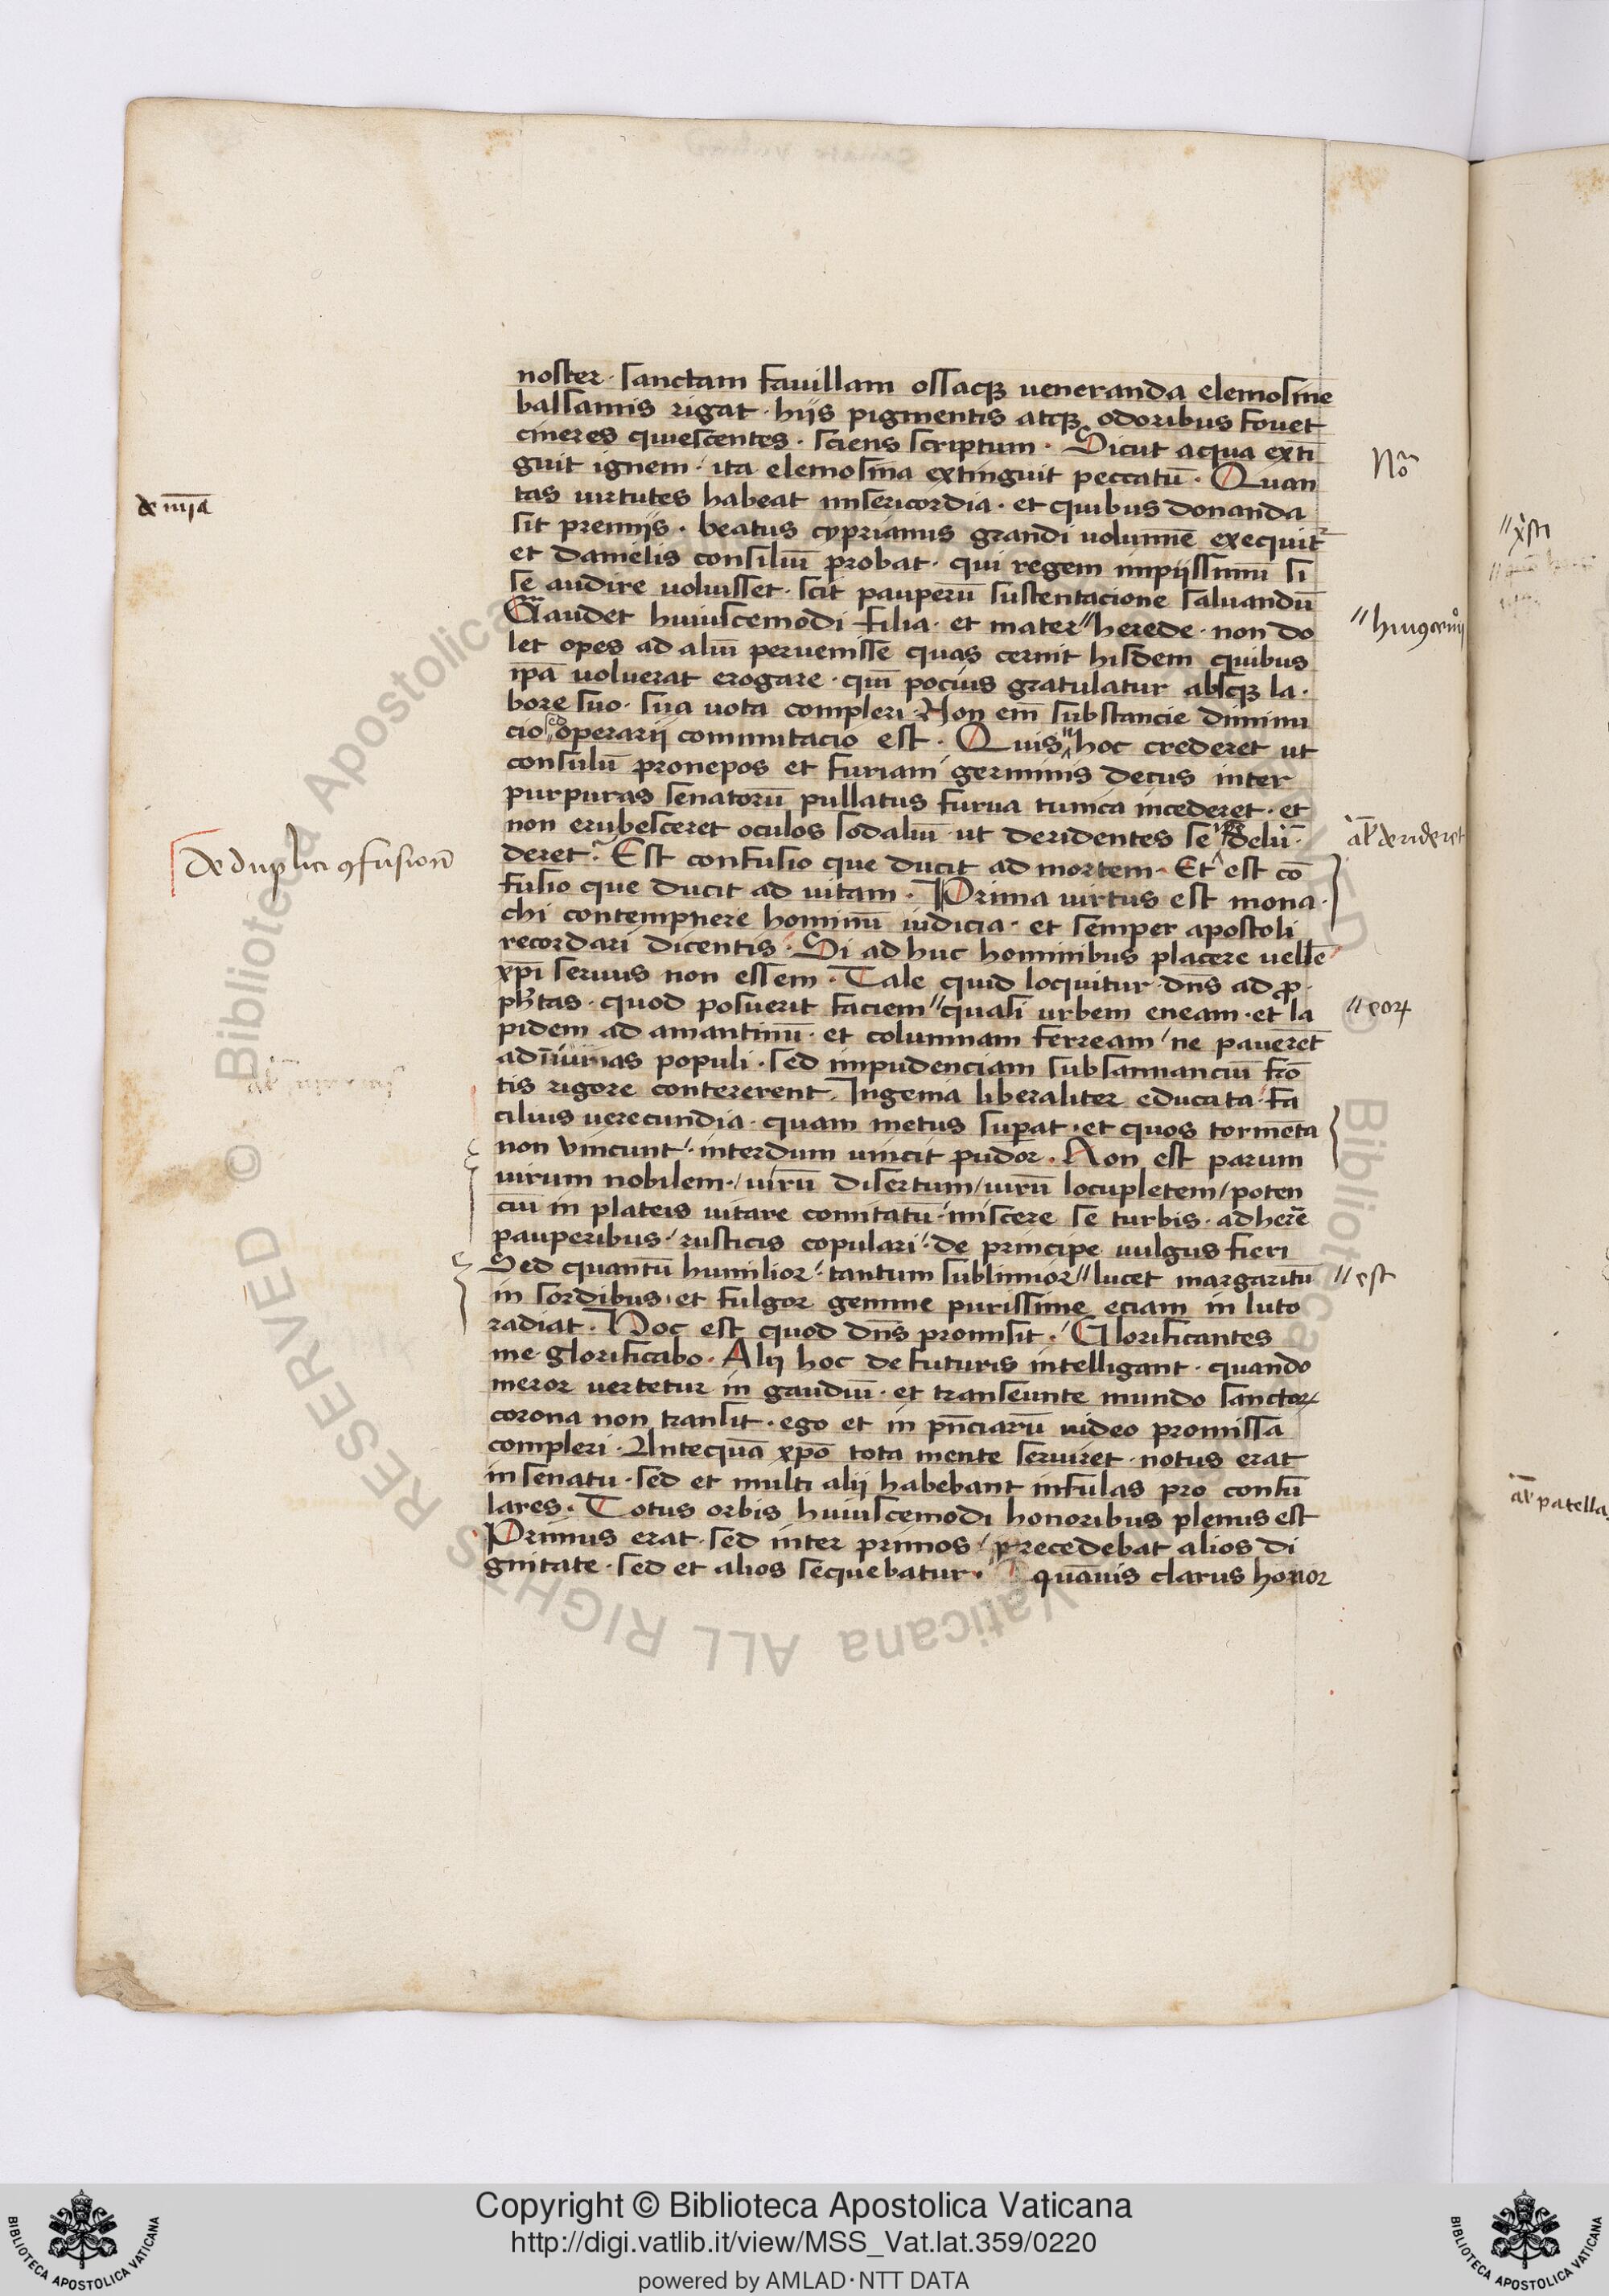 noster · sanctam fauillam ossaqꝫ ueneranda elemosine
balsamis rigat · hijs pigmentis atqꝫ odoribus fouet
cineres quiescentes · sciens scriptum · Sicut aqua extī
guit ignem · ita elemosina extinguit peccatū · Quan
No
de mīa
tas uirtutes habeat misericordia · et quibus donanda
sit premijs · beatus cyprianus grandi uolumīe exequit᷑
et danielis consiliū probat · qui regem impijssimū si
se audire uoluisset · scit pauperū sustentacione saluandū
Gaudet huiuscemodi filia · et mater〃herede · non do
let opes ad aliū peruenisse quas cernit hisdem quibus
ip̄a uoluerat erogare · quī pocius gratulatur absqꝫ la ·
bore suo · sua uota compleri · Non em̄ substancie diminu
cio sed operarij commutacio est · Quis hoc crederet ut
consulū pronepos et furiani germinis decus inter
purpuras senatorū pullatus furua tunica incederet · et
non erubesceret oculos sodaliū · ut deridentes se delū ·
al' derideret
de duplici ꝯfusion̄
deret · Est confusio que ducit ad mortem · Et est cō
fusio que ducit ad uitam · Prima uirtus est mona ·
chi contempnere hominū iudicia · et semper apostoli
recordari dicentis · Si ad huc hominibus placere uellē
xp̄i seruus non essem · Tale quid loquitur dn̄s ad ꝓ ·
ph̄tas · quod posuerit faciem〃quasi urbem eneam · et la
〃eoꝝ
pidem ad amantinū · et columnam ferream / ne pauerēt
ad iniurias populi · sed impudenciam subsannanciū frō
tis rigore contererent. Ingenia liberaliter educata · fa
cilius uerecundia · quam metus suꝑat · et quos tormēta
non vincunt · interdum uincit pudor · Non est parum
uirum nobilem · / uirū disertum / uirū locupletem / poten
ciū in plateis uitare comitatū · miscere se turbis · adherē
pauperibus · rusticis copulari · de principe uulgus fieri
Sed quantū humilior · tantum sublimior〃lucet margaritū
〃est
in sordibus · et fulgor gemme purissime eciam in luto
radiat · Hoc est quod dn̄s promisit · Glorificantes
me glorificabo · Alij hoc de futuris intelligant · quando
meror uertetur in gaudiū · et transeunte mundo sanctoꝝ
corona non transit · ego et in p̄nciarū uideo promissa
compleri · Antequā xpō tota mente seruiret · notus erat
in senatu · sed et multi alij habebant infulas pro consu
lares · Totus orbis huiuscemodi honoribus plenus est
Primus erat · sed inter primos / precedebat alios di
gnitate · sed et alios sequebatur · quāuis clarus honor
〃xp̄sti
al' patella
© Biblioteca Apostolica Vaticana ALL RIGHTS RESERVED
Copyright © Biblioteca Apostolica Vaticana
http://digi.vatlib.it/view/MSS_Vat.lat.359/0220
powered by AMLAD · NTT DATA
BIBLIOTECA APOSTOLICA VATICANA
BIBLIOTECA APOSTOLICA VATICANA